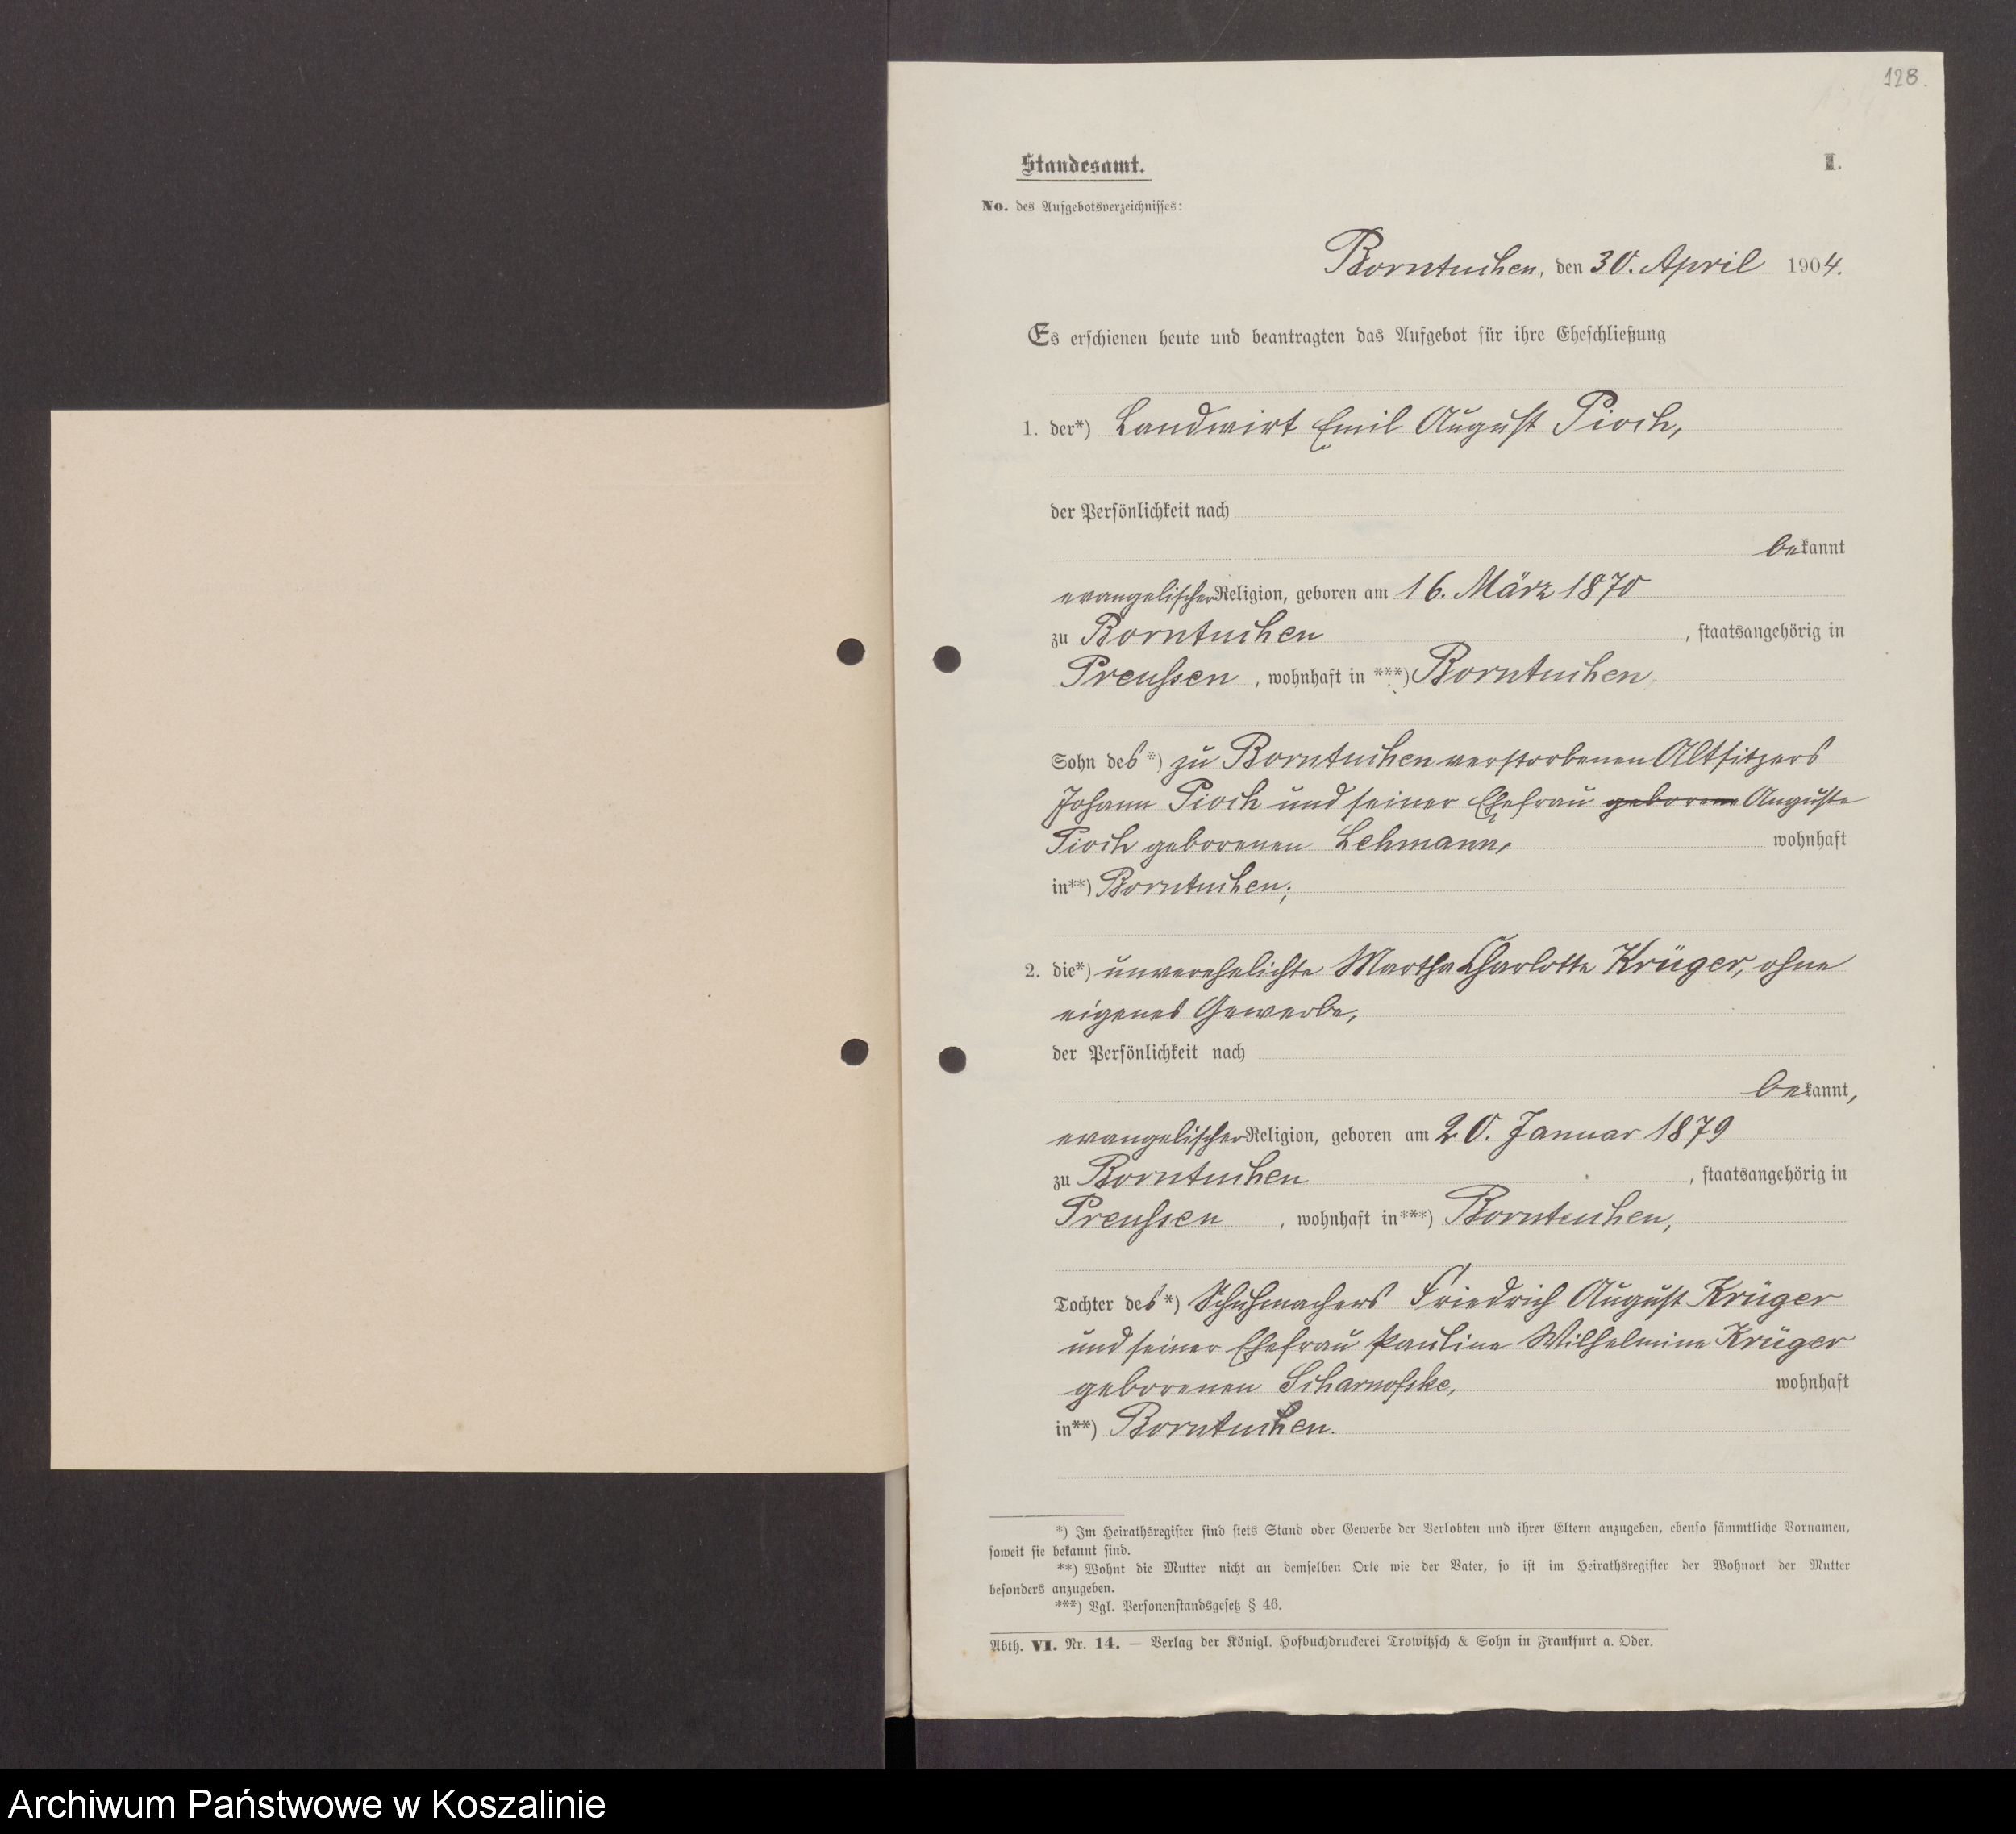 128.
Standesamt.
I.
No. des Aufgebotsverzeichnisses:
Borntuchen, den 30. April 1904.
Es erschienen heute und beantragten das Aufgebot für ihre Eheschließung
1. der*) Landwirt Emil August Pioch,
der Persönlichkeit nach
bekannt
evangelischer Religion, geboren am 16. März 1870
zu Borntuchen, staatsangehörig in
Preussen, wohnhaft in ***) Borntuchen
Sohn des*) zu Borntuchen verstorbenen Altsitzers
Johann Pioch und seiner Ehefrau geborene Auguste
Pioch geborenen Lehmann, wohnhaft
in**) Borntuchen;
2. die*) unverehelichte Martha Charlotte Krüger, ohne
eigenes Gewerbe,
der Persönlichkeit nach
bekannt,
evangelischer Religion, geboren am 20. Januar 1879
zu Borntuchen, staatsangehörig in
Preussen, wohnhaft in***) Borntuchen,
Tochter des*) Schuhmachers Friedrich August Krüger
und seiner Ehefrau Pauline Wilhelmine Krüger
geborenen Scharnofske, wohnhaft
in**) Borntuchen.
*) Im Heirathsregister sind stets Stand oder Gewerbe der Verlobten und ihrer Eltern anzugeben, ebenso sämmtliche Vornamen,
soweit sie bekannt sind.
**) Wohnt die Mutter nicht an demselben Orte wie der Vater, so ist im Heirathsregister der Wohnort der Mutter
besonders anzugeben.
***) Vgl. Personenstandsgesetz § 46.
Abth. VI. Nr. 14. — Verlag der Königl. Hofbuchdruckerei Trowitzsch & Sohn in Frankfurt a. Oder.
Archiwum Państwowe w Koszalinie